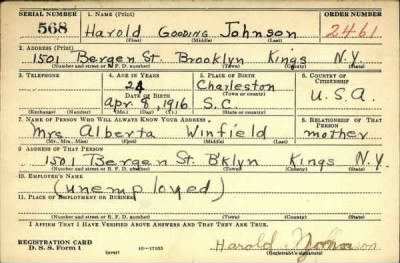 SERIAL NUMBER 1. NAME (Print) ORDER NUMBER
568 Harold Gooding Johnson 2461
(First) (Middle) (Last)
2. ADDRESS (Print)
1501 Bergen St. Brooklyn Kings N.Y.
(Number and street or R. F. D. number) (Town) (County) (State)
3. TELEPHONE 4. AGE IN YEARS 5. PLACE OF BIRTH 6. COUNTRY OF CITIZENSHIP
24 Charleston
DATE OF BIRTH (Town or county)
Apr. 8, 1916 S.C. U.S.A.
(Exchange) (Number) (Mo.) (Day) (Yr.) (State or country)
7. NAME OF PERSON WHO WILL ALWAYS KNOW YOUR ADDRESS 8. RELATIONSHIP OF THAT PERSON
Mrs Alberta Winfield mother
(Mr., Mrs., Miss) (First) (Middle) (Last)
9. ADDRESS OF THAT PERSON
1501 Bergen St. B'klyn Kings N.Y.
(Number and street or R. F. D. number) (Town) (County) (State)
10. EMPLOYER'S NAME
(unemployed)
11. PLACE OF EMPLOYMENT OR BUSINESS
(Number and street or R. F. D. number) (Town) (County) (State)
I AFFIRM THAT I HAVE VERIFIED ABOVE ANSWERS AND THAT THEY ARE TRUE.
REGISTRATION CARD
D. S. S. Form 1 (over) 16—17105 Harold Johnson
(Registrant's signature)